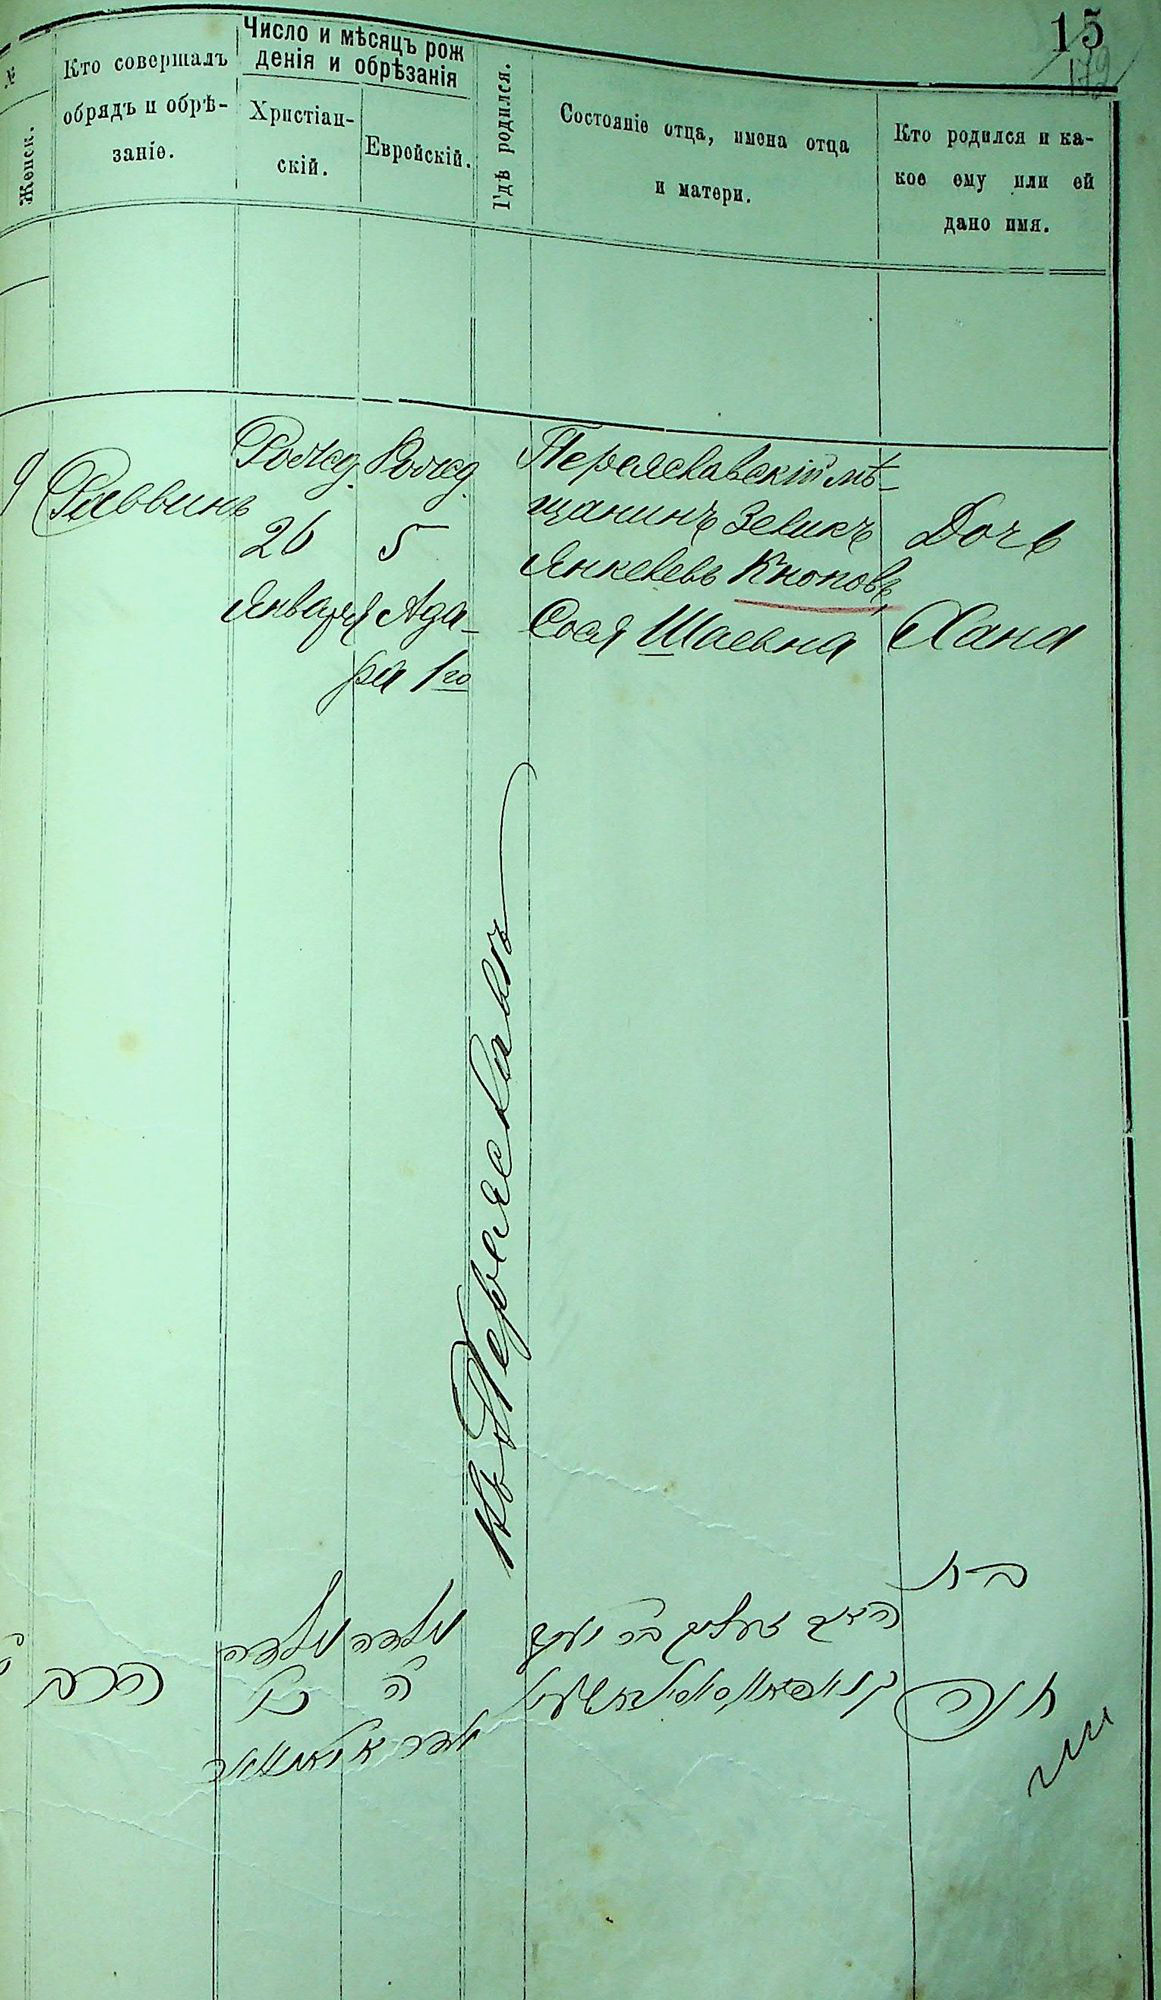 15
№
Женск.
Кто совершалъ
обрядъ и обрѣ-
заніе.
Число и мѣсяцъ рож
денія и обрѣзанія
Христіан-
скій.
Еврейскій.
Гдѣ родился.
Состояніе отца, имена отца
и матери.
Кто родился и ка-
кое ему или ей
дано имя.
9
Раввинъ
Рожд.
26
Января
Рожд.
5
Ада-
ра 1го
въ Переяславѣ
Переяславскій мѣ-
щанинъ Зеликъ
Янкелевъ Кноповъ,
Сося Шаевна
Дочь
Хана
הרב
נולדה
כו
יאנוואר
נולדה
ה
אדר א
בר יעקב
בת
חנה